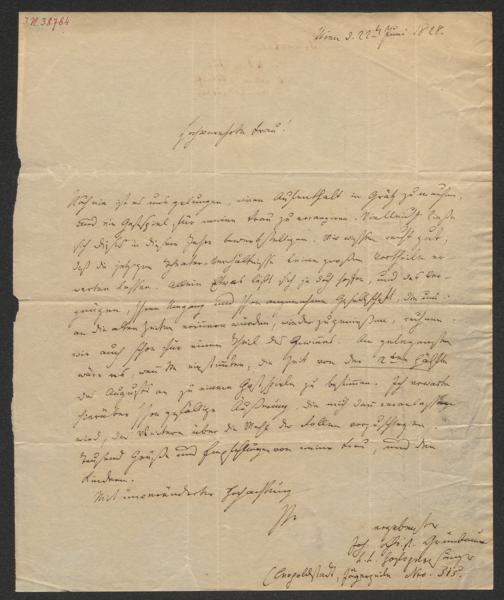 I.N. 38764
Wien d. 22ten Juni 1828.
Hochverehrte Frau!
Noch nie ist es uns gelungen, einen Aufenthalt in Grätz zu machen,
und ein Gastspiel für meine Frau zu arrangiren. Vielleicht ließe
sich dieses in diesem Jahre bewerkstelligen. Wir wissen recht gut,
daß die jetzigen Theater-Verhältnisse keine großen Vortheile er-
warten lassen. Allein Etwas läßt sich ja doch hoffen, und das Ver-
gnügen, Ihren Umgang und Ihre angenehme Gesellschaft, die uns
an die alten Zeiten erinnern würden, wieder zu genießen, rechnen
wir auch schon für einen Theil des Gewinns. Am gelegensten
wäre es, wenn Sie die Zeit von der 2ten Hälfte
des Augusts an zu einem Gastspiele zu bestimmen. Ich erwarte
hierüber Ihre gefällige Äußerung, die mich dann veranlassen
wird, das Weitere über die Wahl der Rollen vorzuschlagen.
Tausend Grüße und Empfehlungen von meiner Frau, und den
Kindern.
Mit unveränderter Hochachtung
Ihr
ergebenster
Joh. Chr. Grünbaum
k. k. Hofopernsänger
(Leopoldstadt, Jägerzeile Nro. 515.